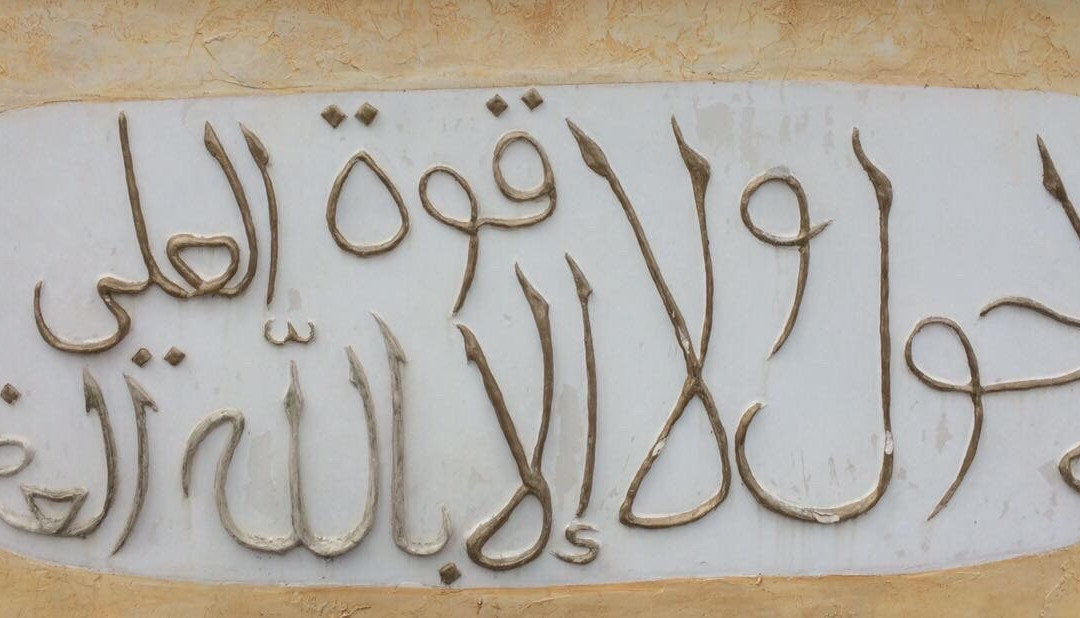 حول ولا قوة إلا بالله العلي